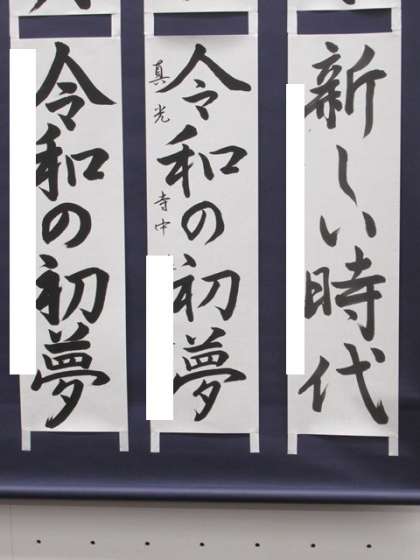 新しい時代
令和の初夢
真光寺中
令和の初夢